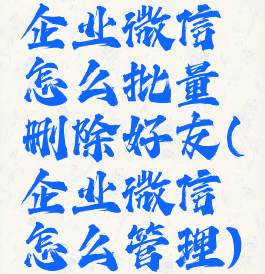 企业微信
怎么批量
删除好友(
企业微信
怎么管理)